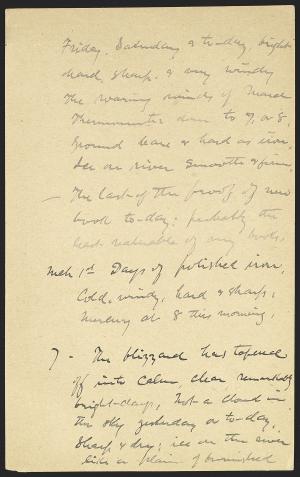 Friday, Saturday, & to-day, bright
hard, sharp, & very windy
The roaring winds of March
Thermometer down to 7, or 8,
Ground bare & hard as iron,
Ice on river smooth & firm.
— The last of the proof of new
book to-day; probably the
least valuable of my books.
Mch 1st Days of polished iron,
Cold, windy, hard & sharp;
Mercury at 8 this morning.
7 - The blizzard has tapered
off into calm, clear remarkably
bright-days, Not a cloud in
the sky yesterday or to-day,
Sharp & dry; ice on the river
like a plain of burnished